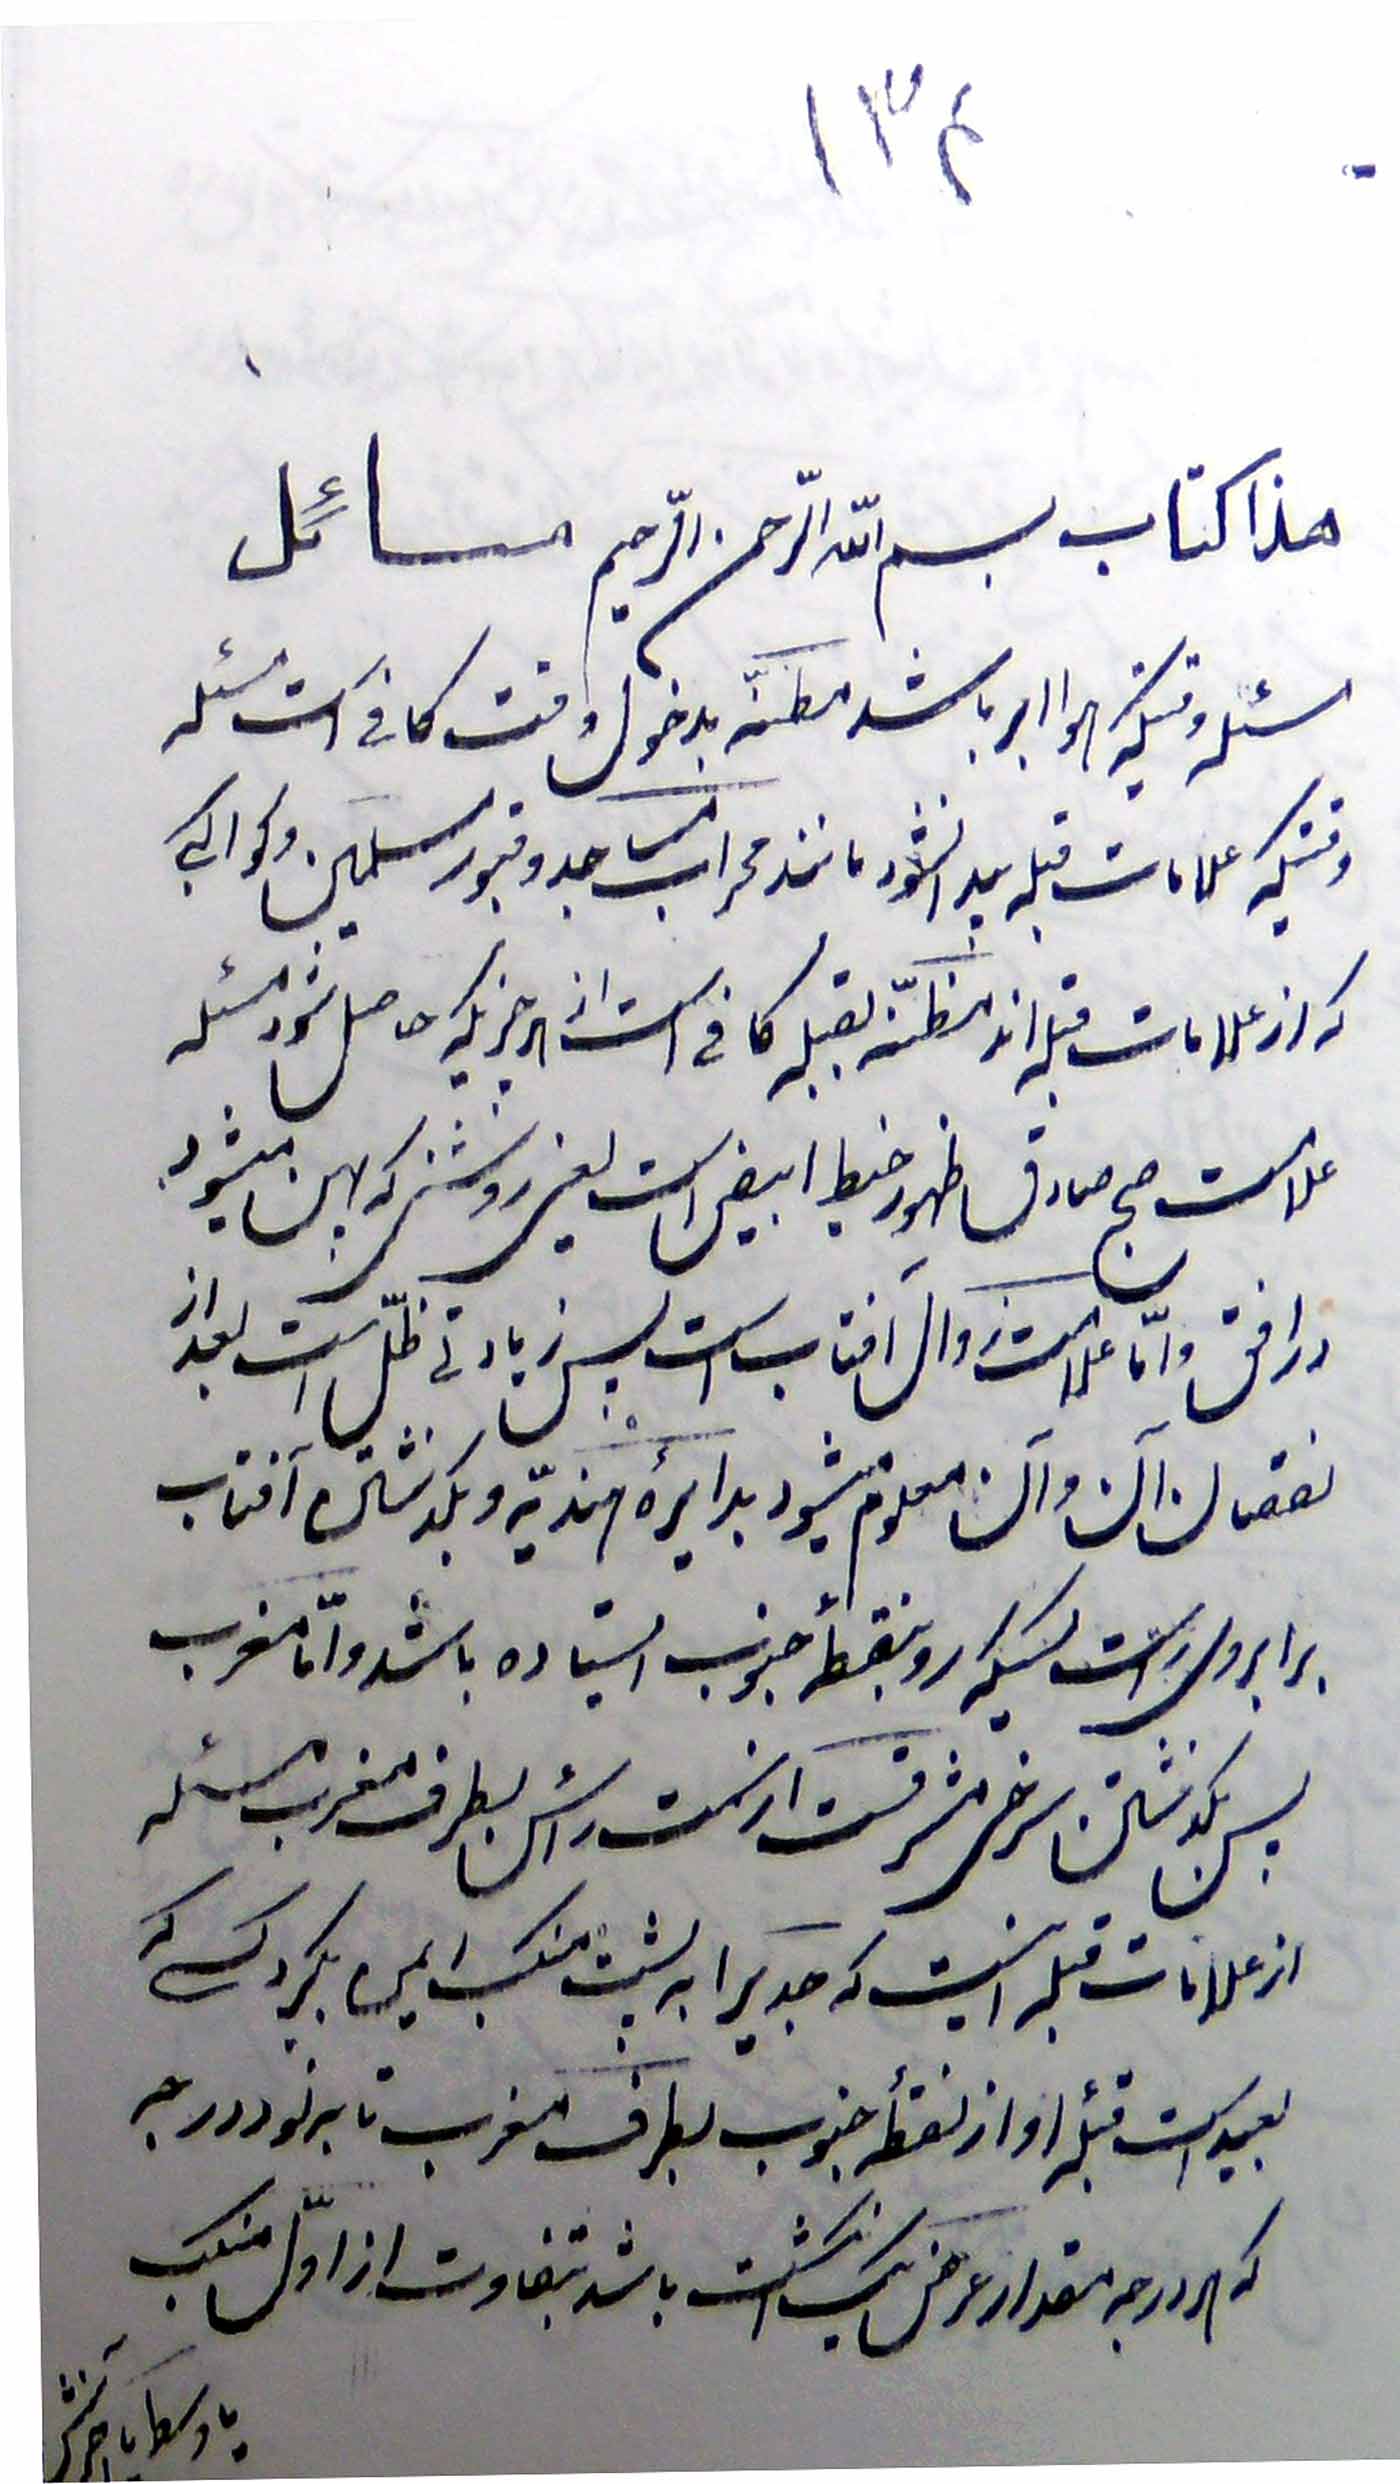 ۱۳۴
هذا کتاب بسم الله الرّحمن الرّحیم مسائل
مسئله وقتیکه هوا ابر باشد مظنّه بدخول وقت کافی است مسئله
وقتیکه علامات قبله پیدا نشود مانند محراب مساجد و قبور مسلمین و کواکبی
که از علامات قبله اند مظنّه بقبله کافی است از هر چیزیکه حاصل شود مسئله
علامت صبح صادق ظهور خیط ابیض است یعنی روشنی که پهن میشود
در افق و امّا علامت زوال آفتاب است پس زیادتی ظلّ است بعد از
نقصان آن و آن معلوم میشود بدایرهٔ هندیّه و بگذشتن آفتاب
برابروی راست کسیکه رو بنقطهٔ جنوب ایستاده باشد و امّا مغرب
پس بگذشتن سرخی مشرقست از سمت رأس بطرف مغرب مسئله
از علامات قبله اینست که جدیرا به پشت منکب ایمن بگیرد کسی که
بعید است قبلهٔ او از نقطهٔ جنوب بطرف مغرب تا به نود درجه
که هر درجه مقدار عرض یک انگشت باشد بتفاوت از اوّل منکب
یا وسط یا آخرش